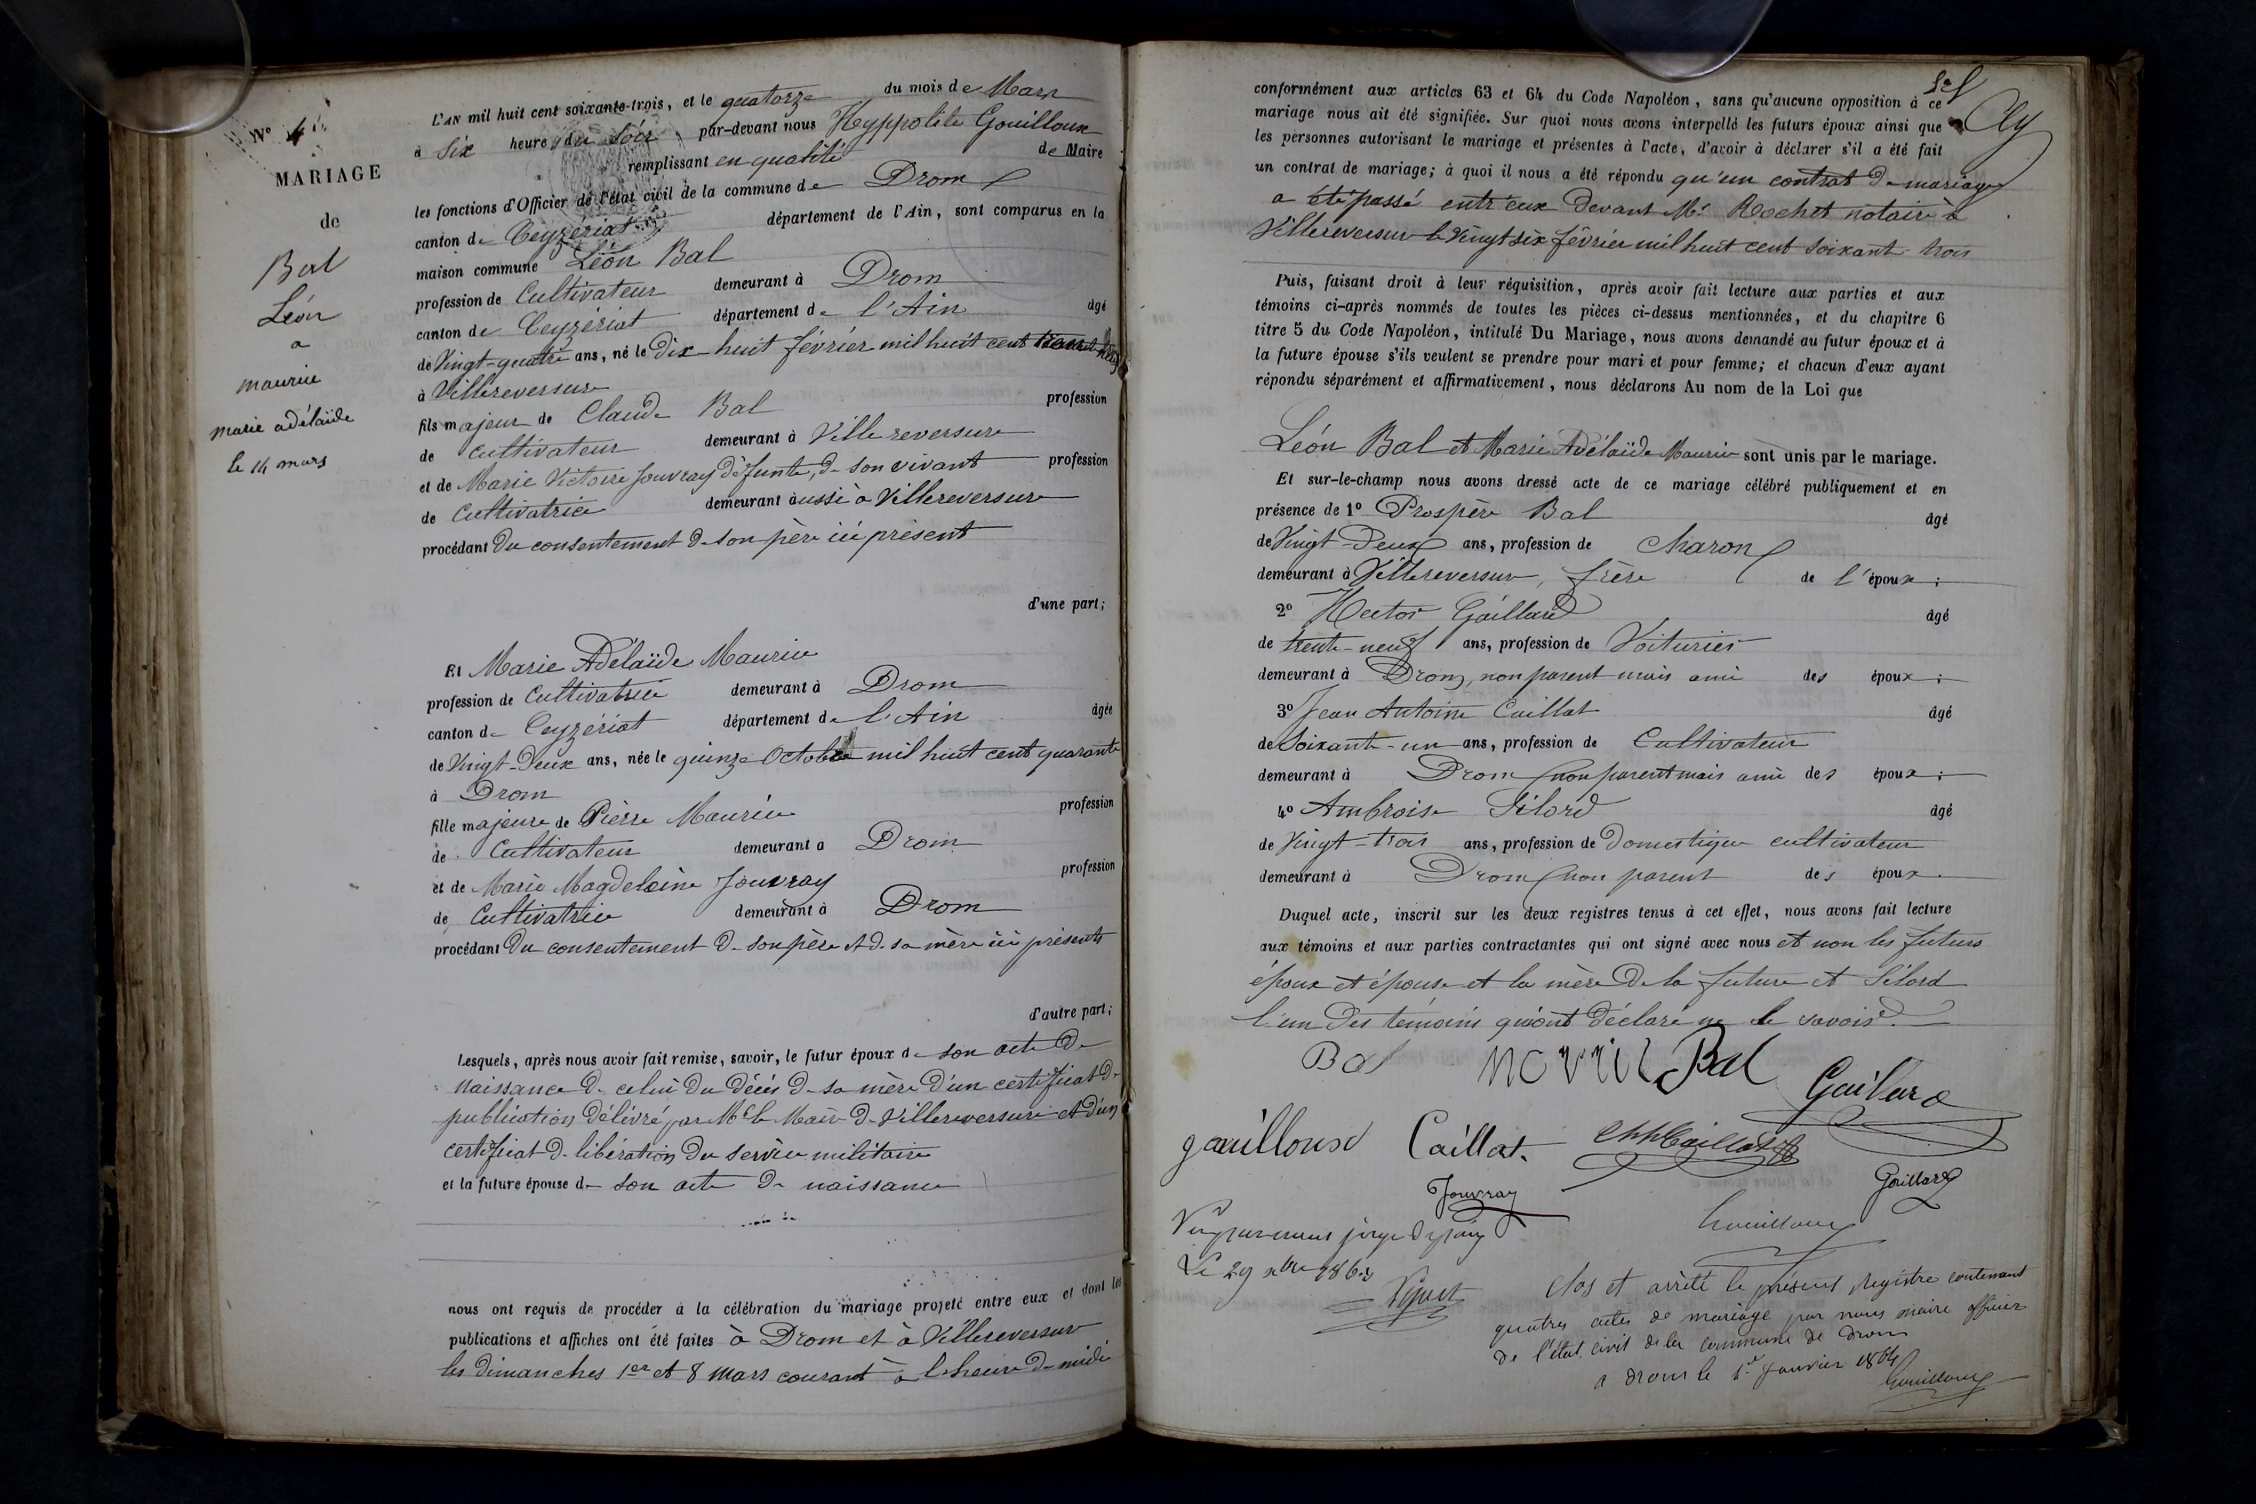 N° 4
MARIAGE
de
Bal
Léon
a
maurice
marie adélaïde
le 14 mars
L'AN mil huit cent soixante-trois, et le quatorze du mois de Mars
à Six heure du soir par-devant nous Hyppolite Gouilloux
remplissant en qualité de Maire
les fonctions d'Officier de l'état civil de la commune de Drom
canton de Ceyzériat département de l'Ain, sont comparus en la
maison commune Léon Bal
profession de Cultivateur demeurant à Drom
canton de Ceyzériat département de l'Ain âgé
de Vingt-quatre ans, né le Dix-huit février mil huit cent
à Villereversure
fils majeur de Claude Bal profession
de Cultivateur demeurant à Villereversure
et de Marie Victoire Jouvray défunte, de son vivant profession
de Cultivatrice demeurant aussi à Villereversure
procédant du consentement de son père ici présent
d'une part;
Et Marie Adélaïde Maurice
profession de Cultivatrice demeurant à Drom
canton de Ceyzériat département de l'Ain âgée
de Vingt-Deux ans, née le quinze Octobre mil huit cent quarante
à Drom
fille majeure de Pierre Maurice profession
de Cultivateur demeurant à Drom
et de Marie Magdeleine Jouvray profession
de Cultivatrice demeurant à Drom
procédant du consentement de son père et de sa mère ici présents
d'autre part;
Lesquels, après nous avoir fait remise, savoir, le futur époux de son acte de
naissance de celui du décès de sa mère d'un certificat de
publication délivré par Mr le Maire de Villereversure et d'un
certificat de libération du service militaire
et la future épouse de son acte de naissance
nous ont requis de procéder à la célébration du mariage projeté entre eux et dont les
publications et affiches ont été faites à Drom et à Villereversure
les dimanches 1er et 8 mars courant à l'heure de midi
conformément aux articles 63 et 64 du Code Napoléon, sans qu'aucune opposition à ce
mariage nous ait été signifiée. Sur quoi nous avons interpellé les futurs époux ainsi que
les personnes autorisant le mariage et présentes à l'acte, d'avoir à déclarer s'il a été fait
un contrat de mariage; à quoi il nous a été répondu qu'un contrat de mariage
a été passé entr'eux devant Me Rochet notaire à
Villereversure le vingt six février mil huit cent soixante trois
Puis, faisant droit à leur réquisition, après avoir fait lecture aux parties et aux
témoins ci-après nommés de toutes les pièces ci-dessus mentionnées, et du chapitre 6
titre 5 du Code Napoléon, intitulé Du Mariage, nous avons demandé au futur époux et à
la future épouse s'ils veulent se prendre pour mari et pour femme; et chacun d'eux ayant
répondu séparément et affirmativement, nous déclarons Au nom de la Loi que
Léon Bal et Marie Adélaïde Maurice sont unis par le mariage.
Et sur-le-champ nous avons dressé acte de ce mariage célébré publiquement et en
présence de 1° Prospère Bal âgé
de Vingt-Deux ans, profession de Charon
demeurant à Villereversure, frère de l'époux;
2° Hector Gaillard âgé
de trente-neuf ans, profession de Voiturier
demeurant à Drom, non parent mais ami des époux;
3° Jean Antoine Caillat âgé
de Soixante-un ans, profession de Cultivateur
demeurant à Drom non parent mais ami des époux;
4° Ambroise Silord âgé
de Vingt-trois ans, profession de Domestique cultivateur
demeurant à Drom non parent des époux.
Duquel acte, inscrit sur les deux registres tenus à cet effet, nous avons fait lecture
aux témoins et aux parties contractantes qui ont signé avec nous et non les futurs
époux et épouse et la mère de la future et Silord
l'un des témoins qui ont déclaré ne le savoir.
Bal Bal Gaillard
gouilloux Caillat. Caillat
Jouvray Gouilloux
Vu par nous juge de paix
Le 29 1863
Clos et arrêté le présent registre contenant
quatres actes de mariage par nous maire officier
de l'état civil de la commune de drom
a drom le 1er Janvier 1864
Gouilloux